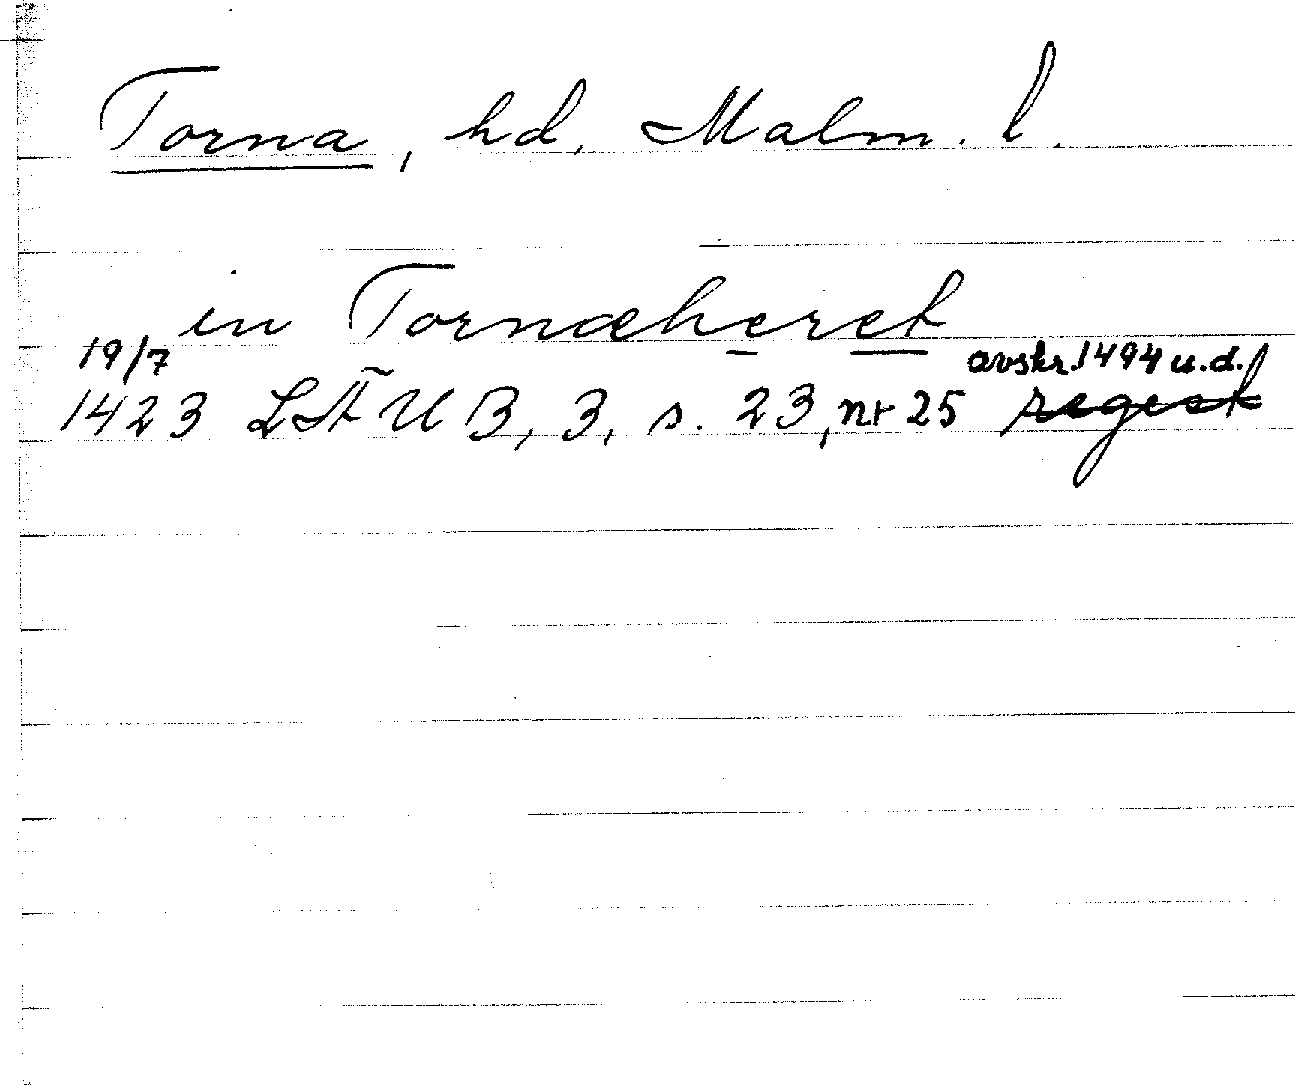 Torna, hd, Malm. l.
in Tornæheret
19/7 avskr. 1494 u.d.
1423 LÄUB, 3, s. 23, nr 25 regest